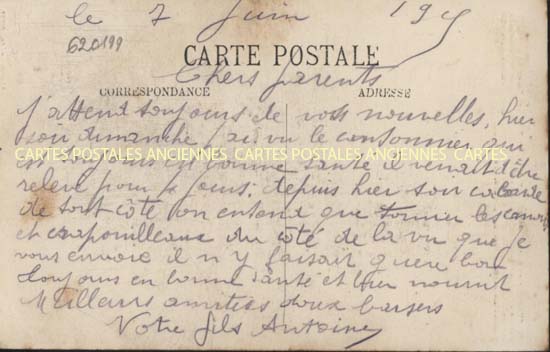 le 7 Juin 191
620199
CARTE POSTALE
Chers parents
CORRESPONDANCE ADRESSE
J'attend toujours de vos nouvelles, hier
soir dimanche j'ai vu le
CARTES POSTALES ANCIENNES CARTES POSTALES ANCIENNES CARTES
en bonne santé il venait d'être
relevé pour 4 jours; depuis hier soir ca barde
de tout côté on entend que tonner les canons
et crapouilleaux du côté de la vu que je
vous envoie il n'y faisait guère bon
Toujours en bonne santé et bien nourrit
Meilleurs amitiés doux baisers
Votre fils Antoine